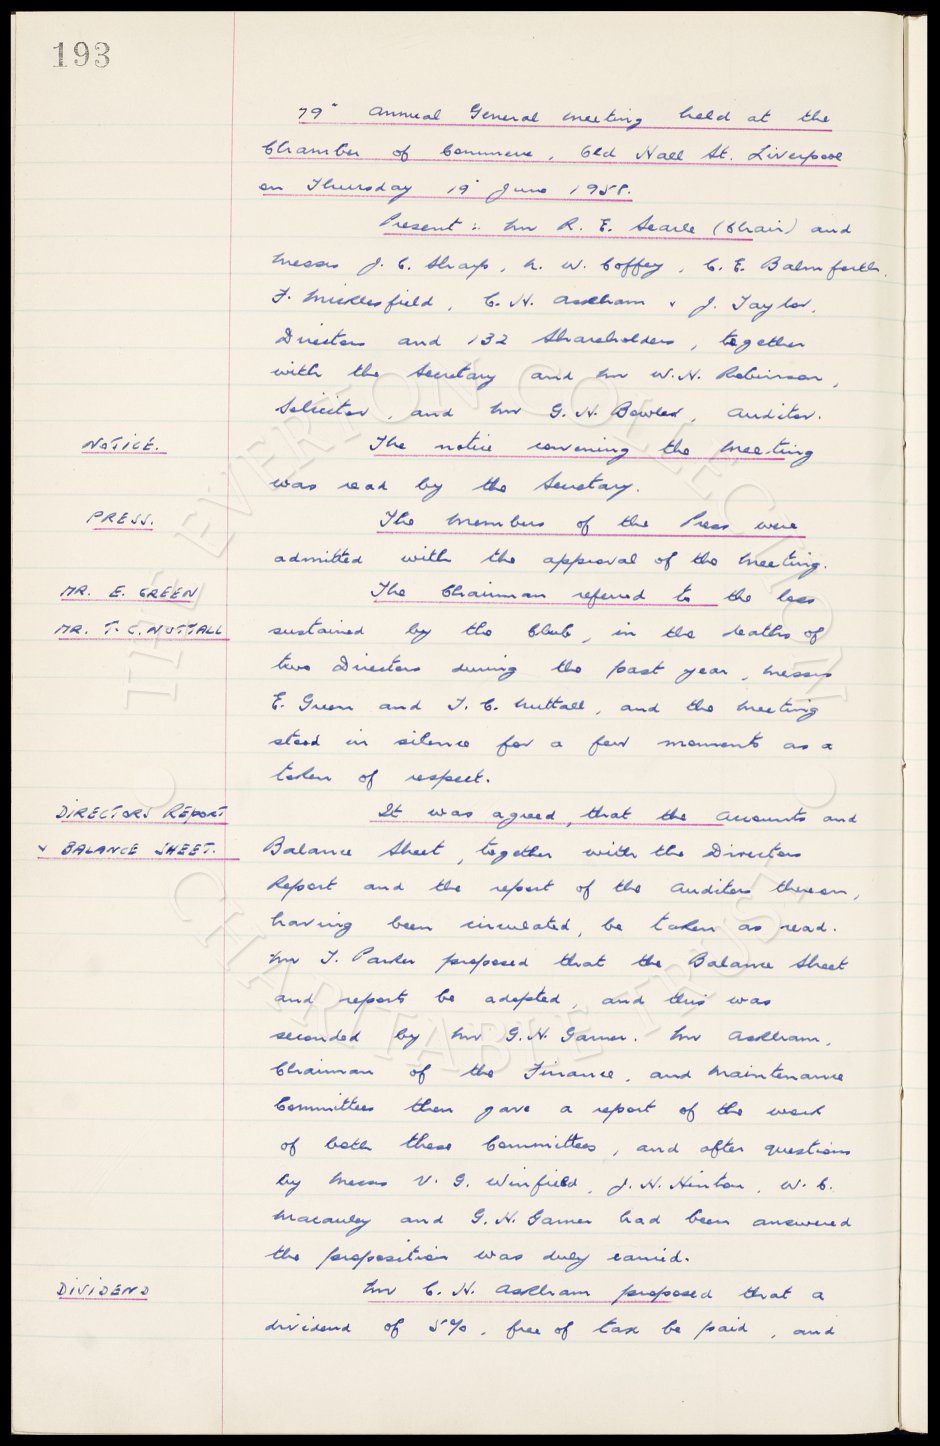 193
79" Annual General Meeting held at the
Chamber of Commerce, Old Hall St. Liverpool
on Thursday 19" June 1958.
Present :- Mr R. E. Searle (Chair) and
Messrs J. C. Sharp, N. W. Coffey, C. E. Balmforth,
F. Micklesfield, C. H. Askham & J. Taylor,
Directors and 132 Shareholders, together
with the Secretary and Mr W. H. Robinson,
Solicitor, and Mr G. H. Bowler, Auditor.
NOTICE. The notice convening the Meeting
was read by the Secretary.
PRESS. The Members of the Press were
admitted with the approval of the Meeting.
MR. E. GREEN The Chairman referred to the loss
MR. T. C. NUTTALL sustained by the Club, in the deaths of
two Directors during the past year, Messrs
E. Green and T. C. Nuttall, and the Meeting
stood in silence for a few moments as a
token of respect.
DIRECTORS REPORT It was agreed, that the Accounts and
& BALANCE SHEET. Balance Sheet, together with the Directors
Report and the report of the Auditors thereon,
having been circulated, be taken as read.
Mr T. Parker proposed that the Balance Sheet
and reports be adopted, and this was
seconded by Mr G. H. Garner. Mr Askham,
Chairman of the Finance, and Maintenance
Committees then gave a report of the work
of both these Committees, and after questions
by Messrs V. G. Winfield, J. H. Hinton, W. C.
Macauley and G. H. Garner had been answered
the proposition was duly carried.
DIVIDEND Mr C. H. Askham proposed that a
dividend of 5%, free of tax be paid, and
THE EVERTON COLLECTION
CHARITABLE TRUST